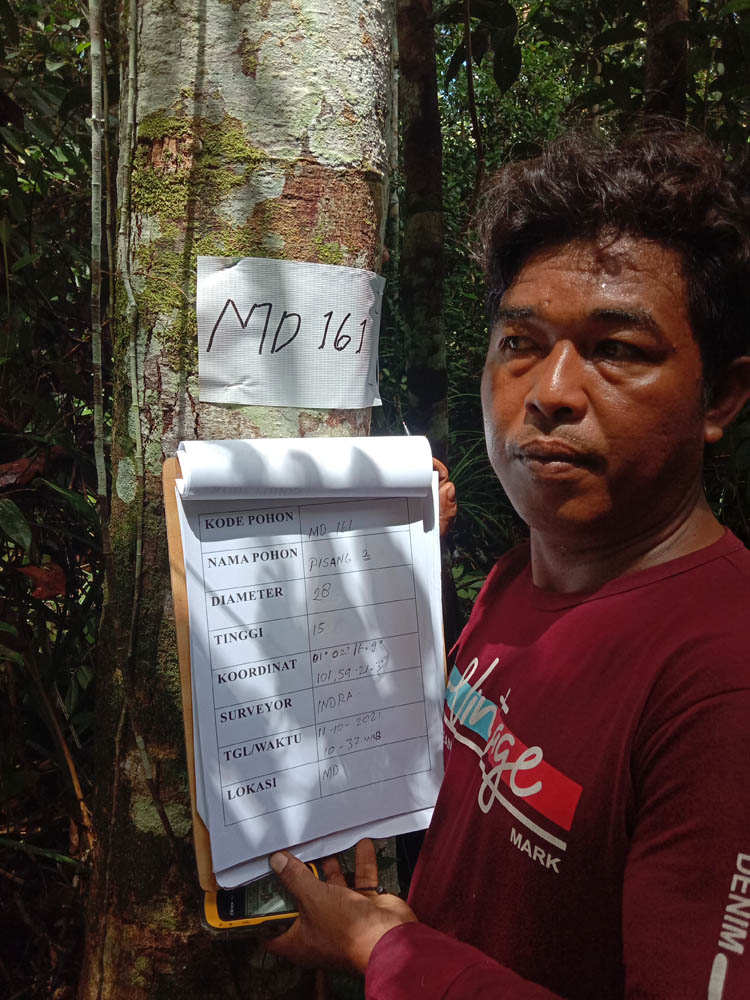 MD 161
KODE POHON MD 161
NAMA POHON PISANG 2
DIAMETER 28
TINGGI 15
KOORDINAT 01° 02' 16.9"
101,59-21.3"
SURVEYOR INDRA
TGL/WAKTU 11-10-2021
10-37 WIB
LOKASI MD
Vintage
MARK
DENIM